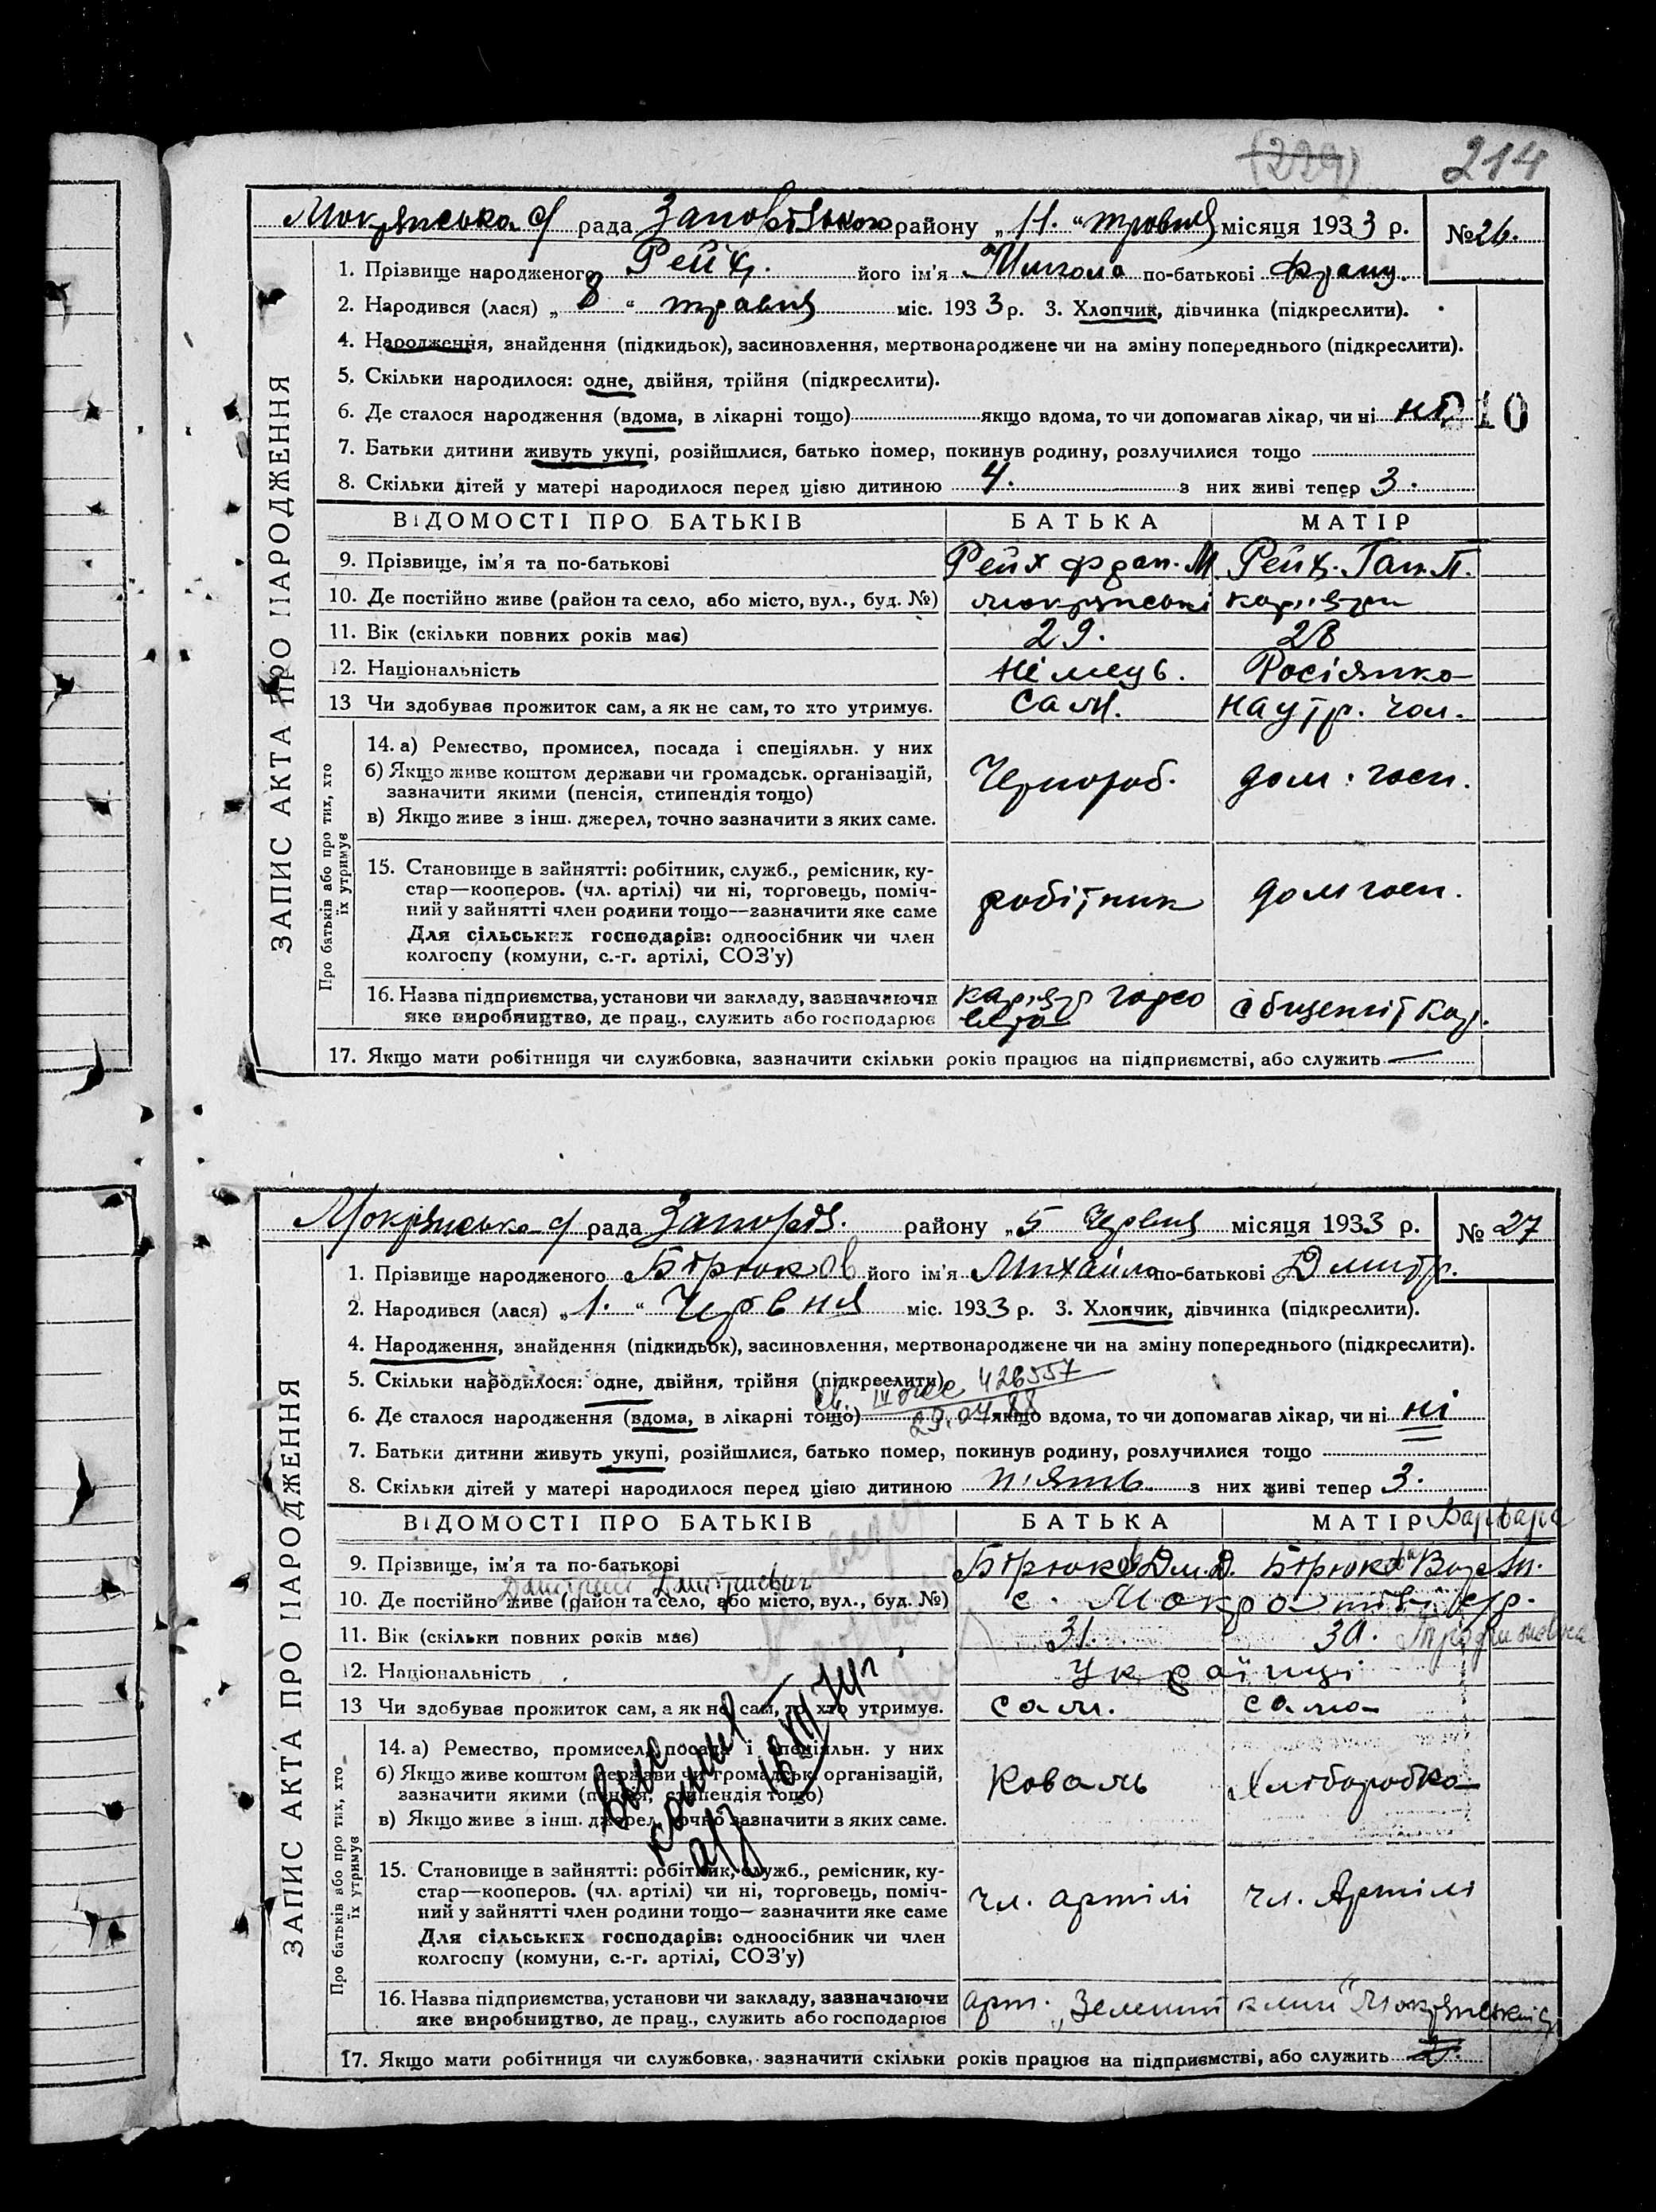 (229) 214
Мокрянська с/ рада Запорізького району „11.“ травня місяця 1933 р. № 26.
ЗАПИС АКТА ПРО НАРОДЖЕННЯ
1. Прізвище народженого Рейх. його ім'я Микола по-батькові Франц.
2. Народився (лася) „8“ травня міс. 1933 р. 3. Хлопчик, дівчинка (підкреслити).
4. Народження, знайдення (підкидьок), засиновлення, мертвонароджене чи на зміну попереднього (підкреслити).
5. Скільки народилося: одне, двійня, трійня (підкреслити).
6. Де сталося народження (вдома, в лікарні тощо) якщо вдома, то чи допомагав лікар, чи ні ні 210
7. Батьки дитини живуть укупі, розійшлися, батько помер, покинув родину, розлучилися тощо
8. Скільки дітей у матері народилося перед цією дитиною 4. з них живі тепер 3.
ВІДОМОСТІ ПРО БАТЬКІВ БАТЬКА МАТІР
9. Прізвище, ім'я та по-батькові Рейх Фран. М. Рейх. Ган. П.
10. Де постійно живе (район та село, або місто, вул., буд. №) Мокрянські кар'єри
11. Вік (скільки повних років має) 29. 28
12. Національність Німець. Росіянка
13 Чи здобував прожиток сам, а як не сам, то хто утримує. Сам. На утр. чол.
Про батьків або про тих, хто їх утримує
14. а) Ремество, промисел, посада і спеціяльн. у них
б) Якщо живе коштом держави чи громадськ. організацій,
зазначити якими (пенсія, стипендія тощо) Чернороб. дом. госп.
в) Якщо живе з інш. джерел, точно зазначити з яких саме.
15. Становище в зайнятті: робітник, служб., ремісник, ку-
стар—кооперов. (чл. артілі) чи ні, торговець, поміч-
ний у зайнятті член родини тощо—зазначити яке саме робітник дом госп.
Для сільських господарів: одноосібник чи член
колгоспу (комуни, с.-г. артілі, СОЗ'у)
16. Назва підприємства, установи чи закладу, зазначаючи кар'єр
яке виробництво, де прац., служить або господарює
17. Якщо мати робітниця чи службовка, зазначити скільки років працює на підприємстві, або служить —
Мокрянська с/ рада Запоріз. району „5 Червня місяця 1933 р. № 27
ЗАПИС АКТА ПРО НАРОДЖЕННЯ
1. Прізвище народженого Бірюков його ім'я Михайло по-батькові Дмитр.
2. Народився (лася) „1.“ Червня міс. 1933 р. 3. Хлопчик, дівчинка (підкреслити).
4. Народження, знайдення (підкидьок), засиновлення, мертвонароджене чи на зміну попереднього (підкреслити).
5. Скільки народилося: одне, двійня, трійня (підкреслити). 426557
6. Де сталося народження (вдома, в лікарні тощо) 29.04.88 якщо вдома, то чи допомагав лікар, чи ні ні
7. Батьки дитини живуть укупі, розійшлися, батько помер, покинув родину, розлучилися тощо
8. Скільки дітей у матері народилося перед цією дитиною п'ять з них живі тепер 3.
ВІДОМОСТІ ПРО БАТЬКІВ БАТЬКА МАТІР Варвара
9. Прізвище, ім'я та по-батькові Бірюков Дм. Д. Бірюкова Вар.
Дмитрий Дмитриевич
10. Де постійно живе (район та село, або місто, вул., буд. №) с. Мокра
11. Вік (скільки повних років має) 31. 30.
12. Національність Українці
13 Чи здобував прожиток сам, а як не сам, то хто утримує. сам. сама
Про батьків або про тих, хто їх утримує
14. а) Ремество, промисел, посада і спеціяльн. у них
б) Якщо живе коштом держави чи громадськ. організацій,
зазначити якими (пенсія, стипендія тощо) Коваль Хліборобка
в) Якщо живе з інш. джерел, точно зазначити з яких саме.
15. Становище в зайнятті: робітник, служб., ремісник, ку-
стар—кооперов. (чл. артілі) чи ні, торговець, поміч- чл. артілі чл. Артілі
ний у зайнятті член родини тощо—зазначити яке саме
Для сільських господарів: одноосібник чи член
колгоспу (комуни, с.-г. артілі, СОЗ'у)
16. Назва підприємства, установи чи закладу, зазначаючи арт. „Зелений клин“
яке виробництво, де прац., служить або господарює
17. Якщо мати робітниця чи службовка, зазначити скільки років працює на підприємстві, або служить